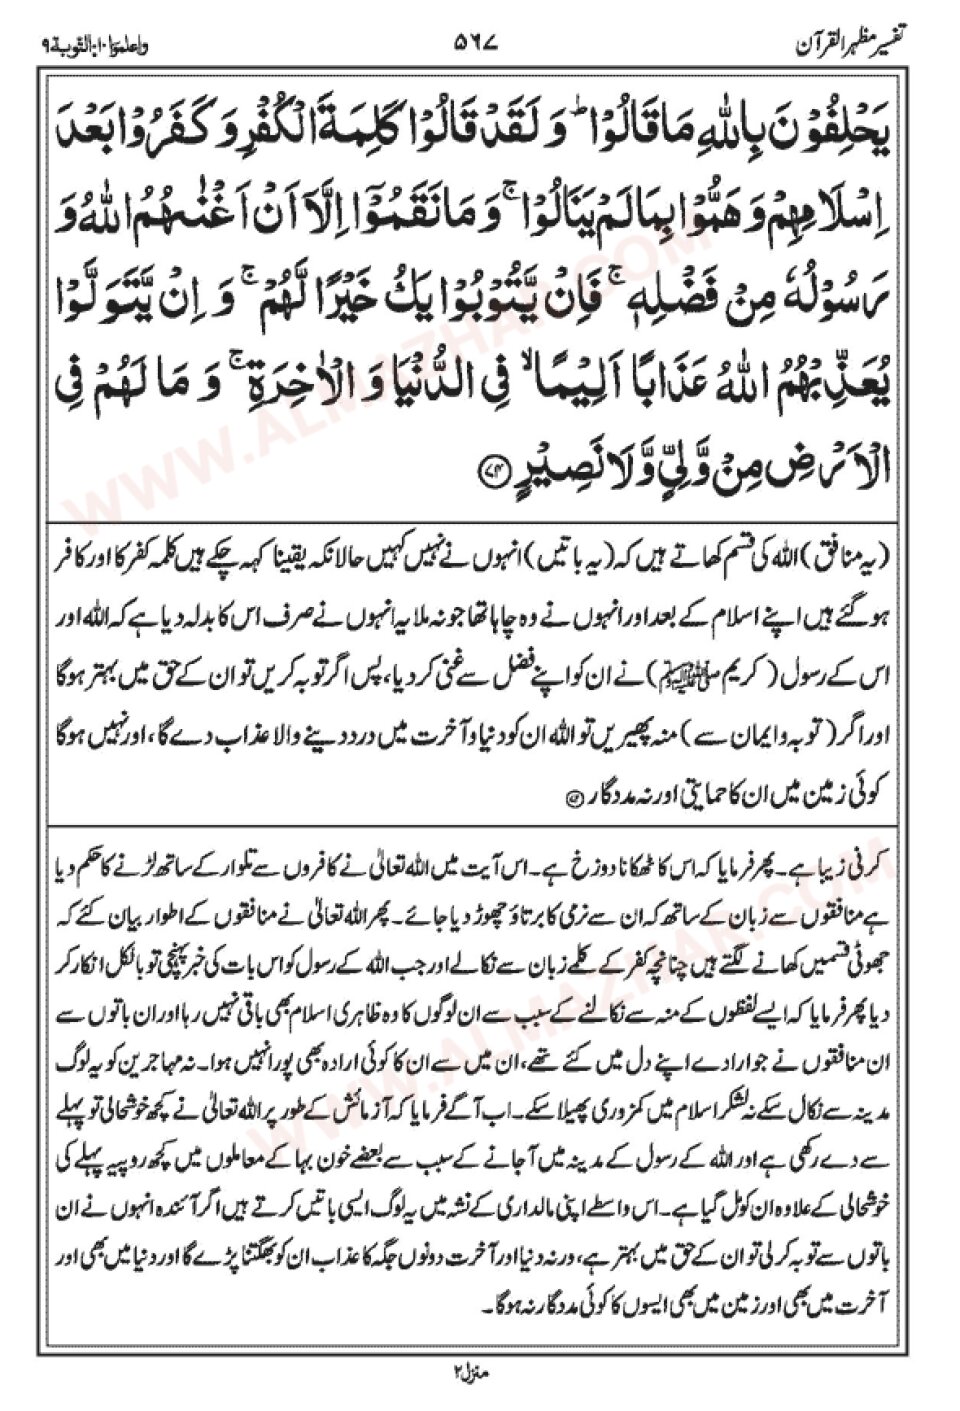 تفسیر مظہر القرآن ۵۶۷ واعلموا ۱۰: التوبة ۹
يَحْلِفُوْنَ بِاللّٰهِ مَا قَالُوْا ؕ وَ لَقَدْ قَالُوْا كَلِمَةَ الْكُفْرِ وَ كَفَرُوْا بَعْدَ
اِسْلَامِهِمْ وَ هَمُّوْا بِمَا لَمْ يَنَالُوْا ۚ وَ مَا نَقَمُوْۤا اِلَّاۤ اَنْ اَغْنٰىهُمُ اللّٰهُ وَ
رَسُوْلُهٗ مِنْ فَضْلِهٖ ۚ فَاِنْ يَّتُوْبُوْا يَكُ خَيْرًا لَّهُمْ ۚ وَ اِنْ يَّتَوَلَّوْا
يُعَذِّبْهُمُ اللّٰهُ عَذَابًا اَلِيْمًا ۙ فِي الدُّنْيَا وَ الْاٰخِرَةِ ۚ وَ مَا لَهُمْ فِي
الْاَرْضِ مِنْ وَّلِيٍّ وَّ لَا نَصِيْرٍ ۝۷۴
(یہ منافق) اللہ کی قسم کھاتے ہیں کہ (یہ باتیں) انہوں نے نہیں کہیں حالانکہ یقینا کہہ چکے ہیں کلمہ کفر کا اور کافر
ہو گئے ہیں اپنے اسلام کے بعد اور انہوں نے وہ چاہا تھا جو نہ ملا یہ انہوں نے صرف اس کا بدلہ دیا ہے کہ اللہ اور
اس کے رسول (کریم ﷺ) نے ان کو اپنے فضل سے غنی کر دیا، پس اگر توبہ کریں تو ان کے حق میں بہتر ہوگا
اور اگر (توبہ و ایمان سے) منہ پھیریں تو اللہ ان کو دنیا و آخرت میں درد دینے والا عذاب دے گا، اور نہیں ہوگا
کوئی زمین میں ان کا حمایتی اور نہ مددگار ۝۷۴
کرنی زیبا ہے۔ پھر فرمایا کہ اس کا ٹھکانا دوزخ ہے۔ اس آیت میں اللہ تعالیٰ نے کافروں سے تلوار کے ساتھ لڑنے کا حکم دیا
ہے منافقوں سے زبان کے ساتھ کہ ان سے نرمی کا برتاؤ چھوڑ دیا جائے۔ پھر اللہ تعالیٰ نے منافقوں کے اطوار بیان کئے کہ
جھوٹی قسمیں کھانے لگتے ہیں چنانچہ کفر کے کلمے زبان سے نکالے اور جب اللہ کے رسول کو اس بات کی خبر پہنچی تو بالکل انکار کر
دیا پھر فرمایا کہ ایسے لفظوں کے منہ سے نکالنے کے سبب سے ان لوگوں کا وہ ظاہری اسلام بھی باقی نہیں رہا اور ان باتوں سے
ان منافقوں نے جو ارادے اپنے دل میں کئے تھے، ان میں سے ان کا کوئی ارادہ بھی پورا نہیں ہوا۔ نہ مہاجرین کو یہ لوگ
مدینہ سے نکال سکے نہ لشکر اسلام میں کمزوری پھیلا سکے۔ اب آگے فرمایا کہ آزمائش کے طور پر اللہ تعالیٰ نے کچھ خوشحالی تو پہلے
سے دے رکھی ہے اور اللہ کے رسول کے مدینہ میں آ جانے کے سبب سے بعضے خون بہا کے معاملوں میں کچھ روپیہ پہلے کی
خوشحالی کے علاوہ ان کو مل گیا ہے۔ اس واسطے اپنی مالداری کے نشہ میں یہ لوگ ایسی باتیں کرتے ہیں اگر آئندہ انہوں نے ان
باتوں سے توبہ کر لی تو ان کے حق میں بہتر ہے، ورنہ دنیا اور آخرت دونوں جگہ کا عذاب ان کو بھگتنا پڑے گا اور دنیا میں بھی اور
آخرت میں بھی اور زمین میں بھی ایسوں کا کوئی مددگار نہ ہوگا۔
منزل ۲
WWW.ALMAZHAR.COM
WWW.ALMAZHAR.COM